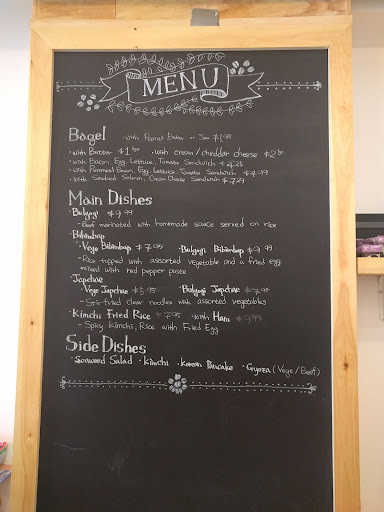 MENU
Bagel with Peanut Butter or Jam $1.95
· with Butter $1.50 · with cream/cheddar cheese $2.50
· with Bacon, Egg, Lettuce, Tomato Sandwich $4.25
· with Peameal Bacon, Egg, Lettuce, Tomato Sandwich $4.99
· with Smoked Salmon, Cream Cheese Sandwich $7.29
Main Dishes
· Bulgogi $9.99
- Beef marinated with homemade sauce served on rice
· Bibimbap
· Vege Bibimbap $7.95 · Bulgogi Bibimbap $9.99
- Rice topped with assorted vegetable and a fried egg
mixed with red pepper paste
· Japchae
· Vege Japchae $5.95 · Bulgogi Japchae $7.95
- Stir-fried clear noodles with assorted vegetables
· Kimchi Fried Rice $7.95 · with Ham $9.99
- Spicy Kimchi, Rice with Fried Egg
Side Dishes
· Seaweed Salad · Kimchi · Korean Pancake · Gyoza (Vege/Beef)